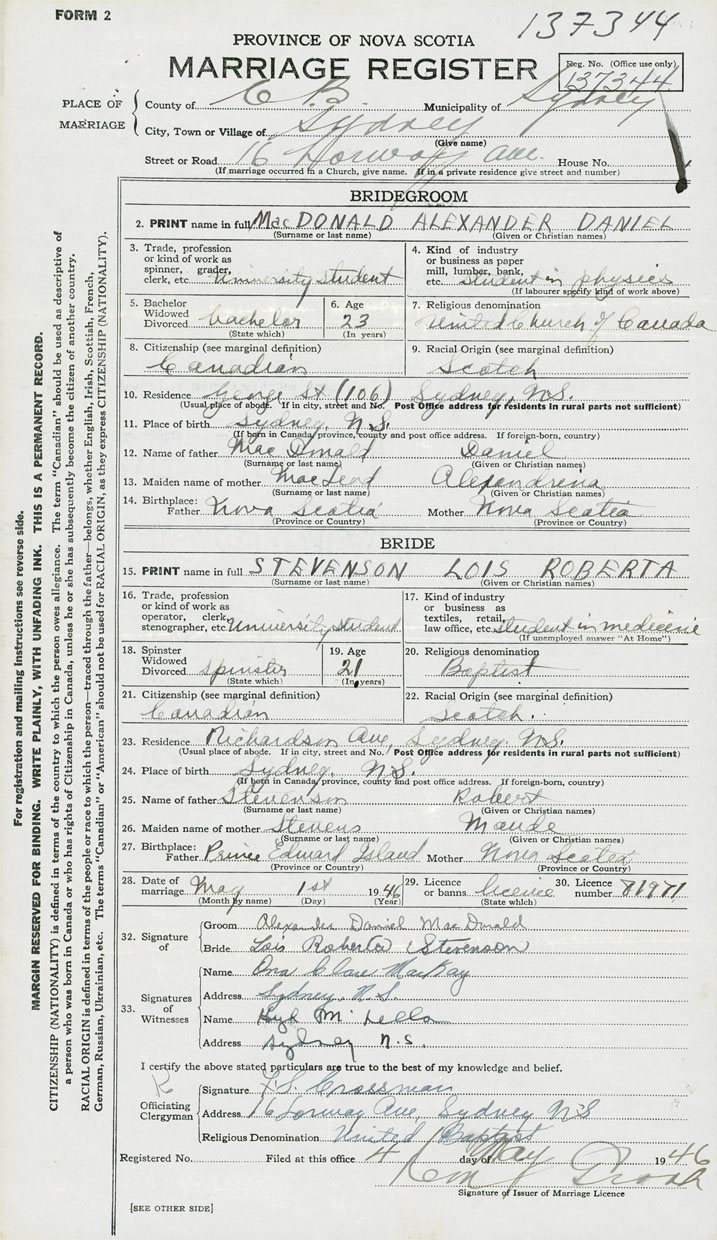 FORM 2
137344
PROVINCE OF NOVA SCOTIA
MARRIAGE REGISTER
Reg. No. (Office use only)
137344
PLACE OF MARRIAGE
County of C. B. Municipality of Sydney
City, Town or Village of Sydney
(Give name)
Street or Road 16 Ave. House No.
(If marriage occurred in a Church, give name. If in a private residence give street and number)
BRIDEGROOM
2. PRINT name in full MacDONALD ALEXANDER DANIEL
(Surname or last name) (Given or Christian names)
3. Trade, profession or kind of work as spinner, grader, clerk, etc. University student
4. Kind of industry or business as paper mill, lumber, bank, etc. student in physics
(If labourer specify kind of work above)
5. Bachelor Widowed Divorced bachelor
(State which)
6. Age 23
(In years)
7. Religious denomination
United Church of Canada
8. Citizenship (see marginal definition)
Canadian
9. Racial Origin (see marginal definition)
Scotch
10. Residence George St (106) Sydney, N.S.
(Usual place of abode. If in city, street and No. Post Office address for residents in rural parts not sufficient)
11. Place of birth Sydney, N.S.
(If born in Canada province, county and post office address. If foreign-born, country)
12. Name of father MacDonald Daniel
(Surname or last name) (Given or Christian names)
13. Maiden name of mother MacLeod Alexandrena
(Surname or last name) (Given or Christian names)
14. Birthplace: Father Nova Scotia Mother Nova Scotia
(Province or Country) (Province or Country)
BRIDE
15. PRINT name in full STEVENSON LOIS ROBERTA
(Surname or last name) (Given or Christian names)
16. Trade, profession or kind of work as operator, clerk, stenographer, etc. University student
17. Kind of industry or business as textiles, retail, law office, etc. student in medicine
(If unemployed answer "At Home")
18. Spinster Widowed Divorced spinster
(State which)
19. Age 21
(In years)
20. Religious denomination
Baptist
21. Citizenship (see marginal definition)
Canadian
22. Racial Origin (see marginal definition)
Scotch.
23. Residence Richardson Ave, Sydney. N.S.
(Usual place of abode. If in city, street and No. Post Office address for residents in rural parts not sufficient)
24. Place of birth Sydney. N.S.
(If born in Canada, province, county and post office address. If foreign-born, country)
25. Name of father Stevenson Robert
(Surname or last name) (Given or Christian names)
26. Maiden name of mother Stevens Maude
(Surname or last name) (Given or Christian names)
27. Birthplace: Father Prince Edward Island Mother Nova Scotia
(Province or Country) (Province or Country)
28. Date of marriage May 1st 1946
(Month by name) (Day) (Year)
29. Licence or banns licence
(State which)
30. Licence number 81971
32. Signature of
Groom Alexander Daniel MacDonald
Bride Lois Roberta Stevenson
33. Signatures of Witnesses
Name Ona Clare MacKay
Address Sydney, N.S.
Name Hugh
Address Sydney N.S.
I certify the above stated particulars are true to the best of my knowledge and belief.
Officiating Clergyman
Signature F. S. Crossman
Address 16 Ave, Sydney NS
Religious Denomination United Baptist
Registered No. Filed at this office 4 day of May 1946
Signature of Issuer of Marriage Licence
[SEE OTHER SIDE]
For registration and mailing instructions see reverse side.
MARGIN RESERVED FOR BINDING. WRITE PLAINLY, WITH UNFADING INK. THIS IS A PERMANENT RECORD.
CITIZENSHIP (NATIONALITY) is defined in terms of the country to which the person owes allegiance. The term "Canadian" should be used as descriptive of
a person who was born in Canada or who has rights of Citizenship in Canada, unless he or she has subsequently become the citizen of another country.
RACIAL ORIGIN is defined in terms of the people or race to which the person—traced through the father—belongs, whether English, Irish, Scottish, French,
German, Russian, Ukrainian, etc. The terms "Canadian" or "American" should not be used for RACIAL ORIGIN, as they express CITIZENSHIP (NATIONALITY).